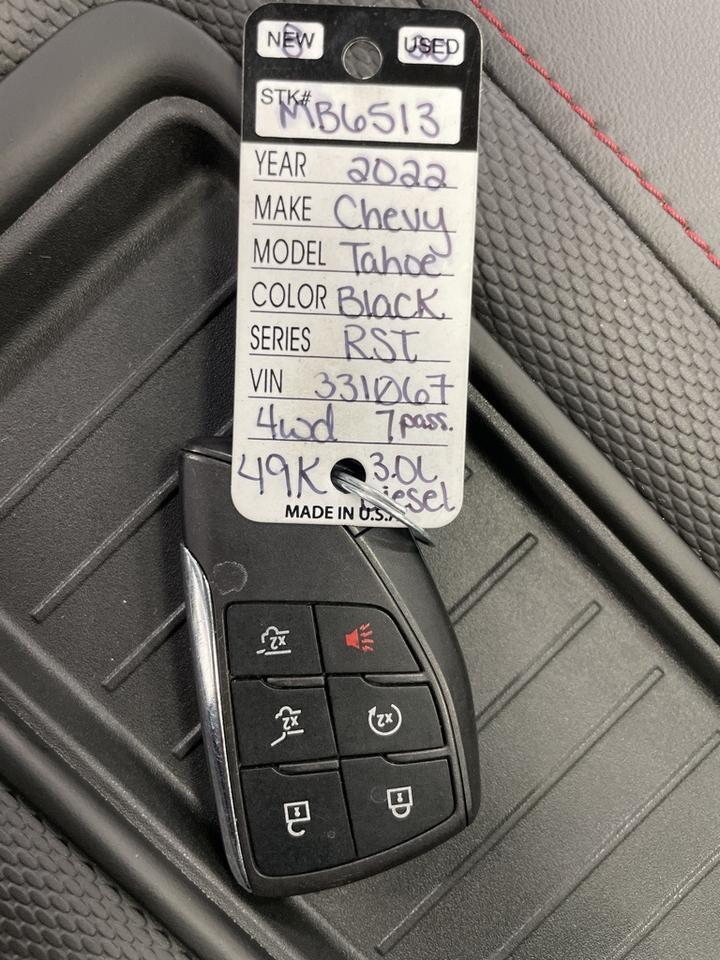 NEW USED
STK# MB6513
YEAR 2022
MAKE Chevy
MODEL Tahoe
COLOR Black
SERIES RST
VIN 331067
4wd 7 pass.
49K 3.0L
Diesel
MADE IN U.S.A.
x2
x2 x2